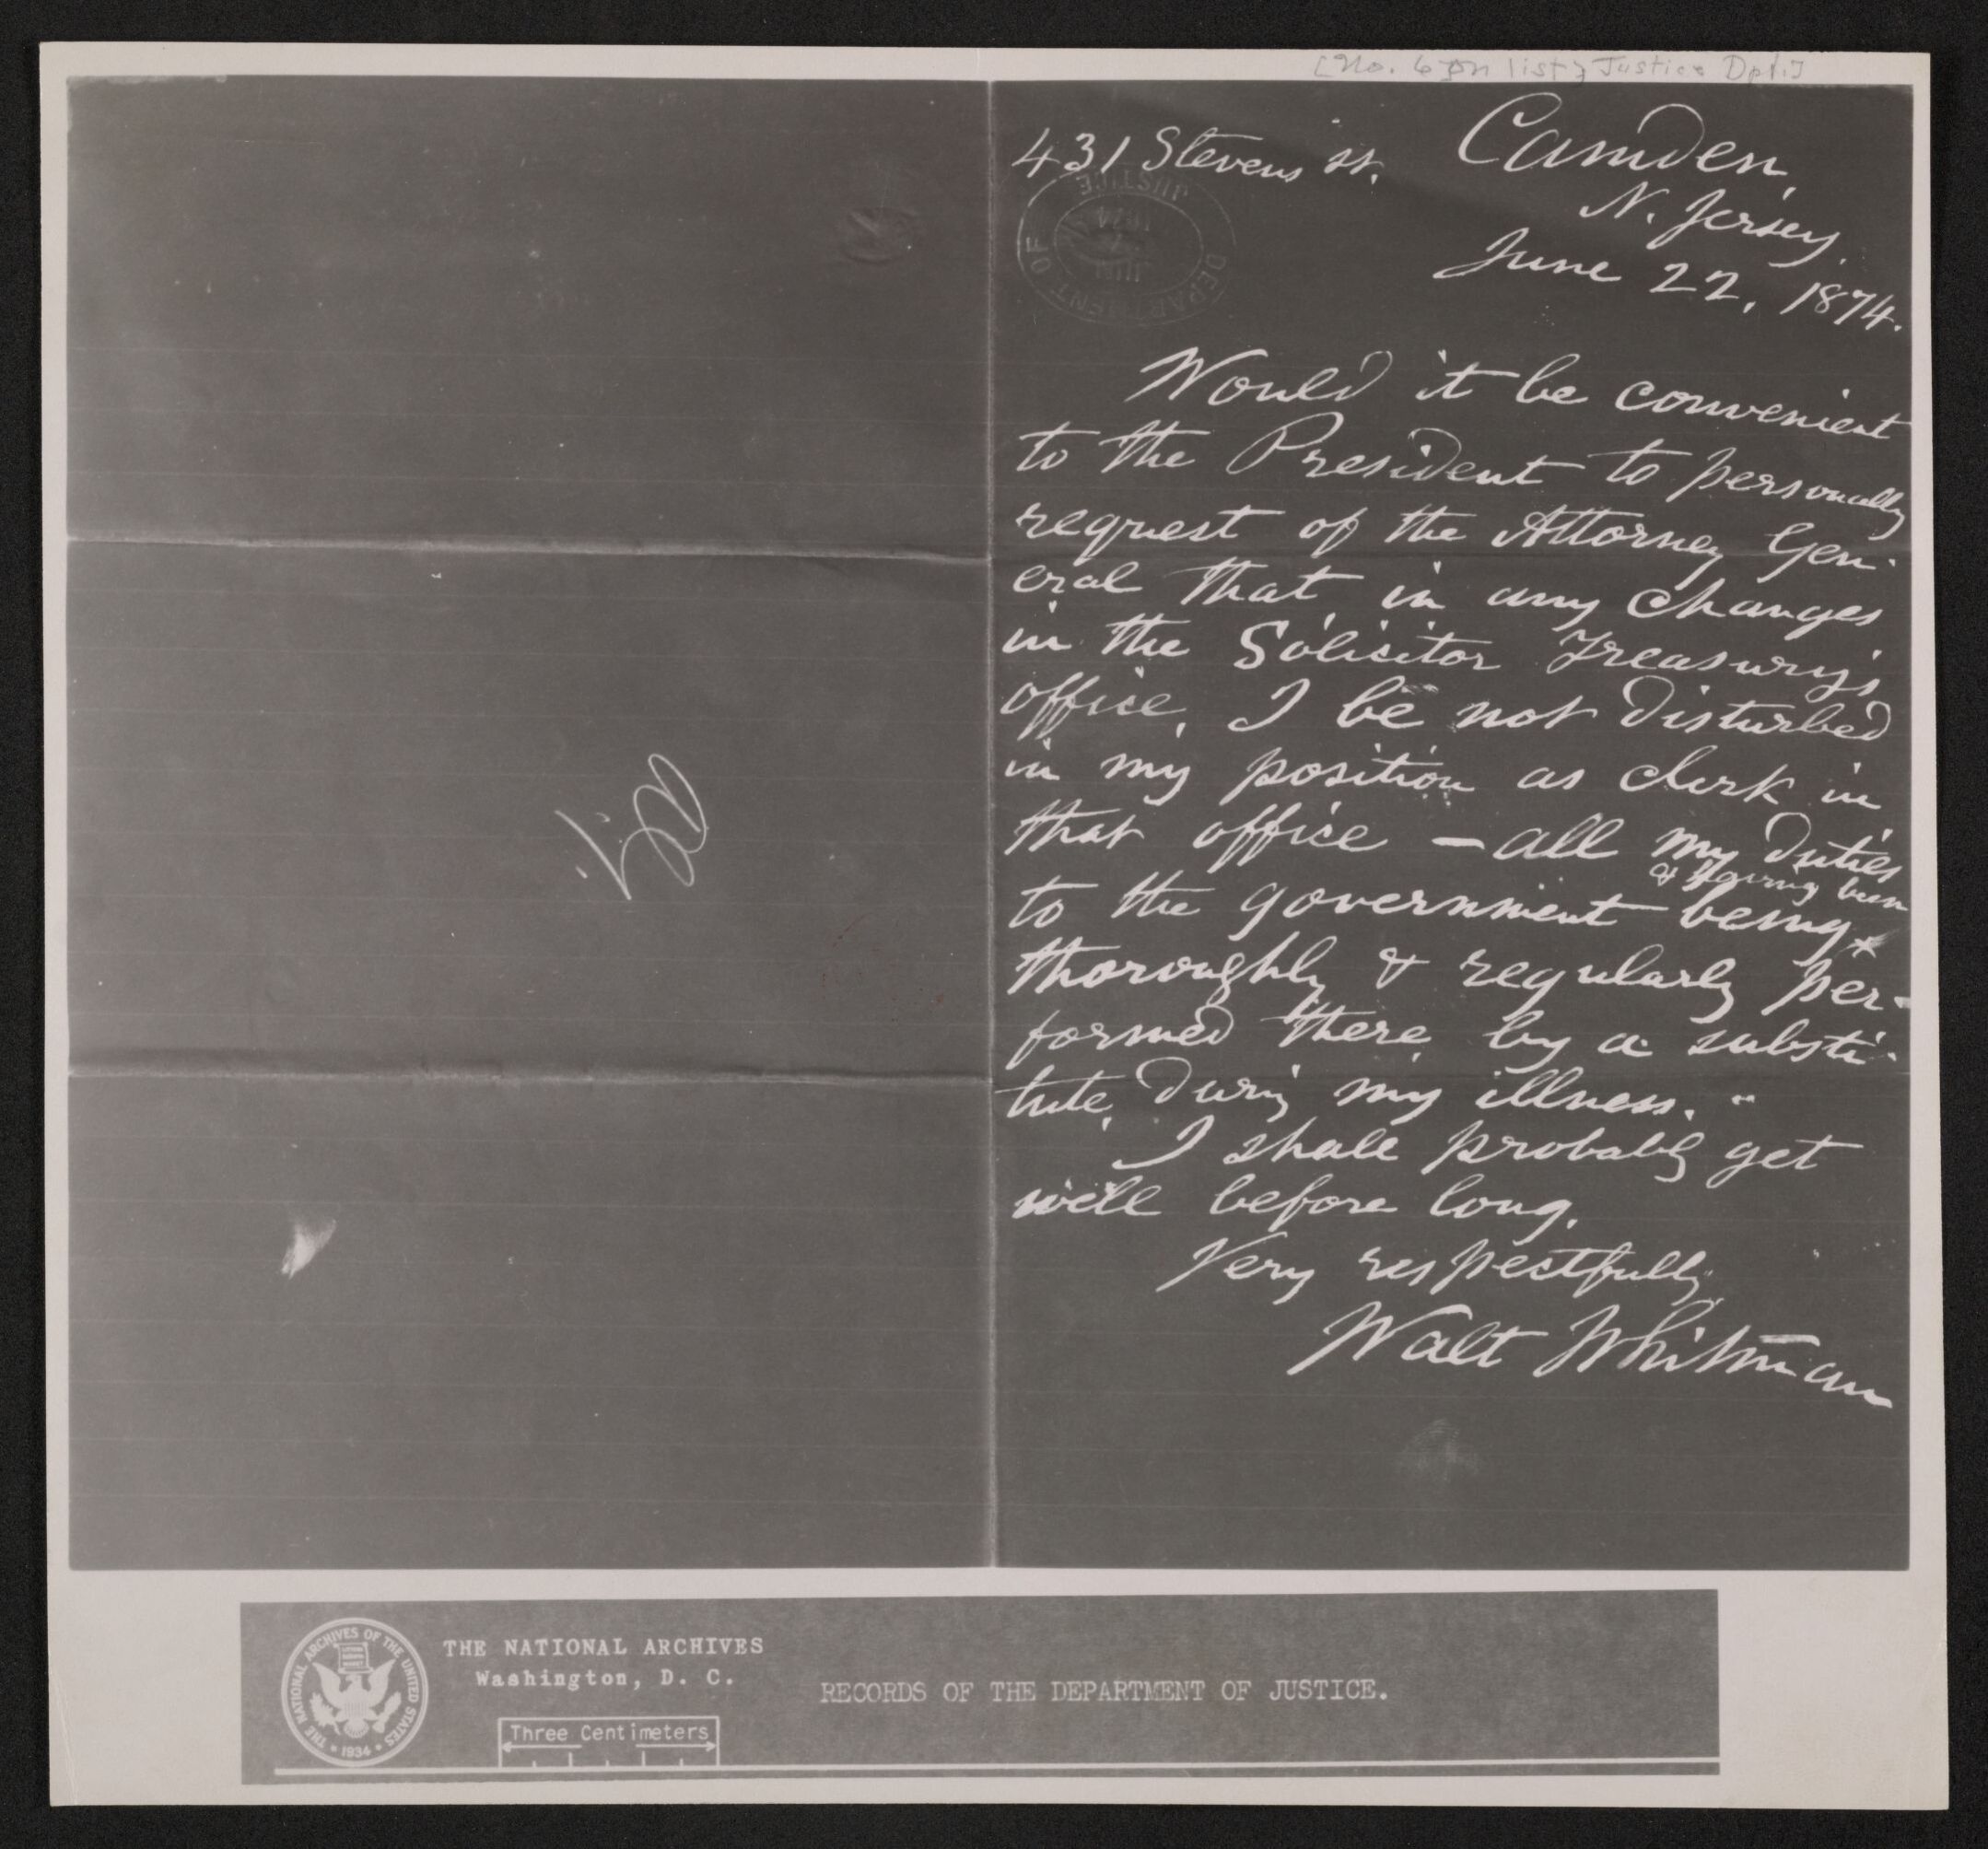 [No. 6 on list, Justice Dpt.]
431 Stevens st. Camden,
N. Jersey.
June 22, 1874.
DEPARTMENT OF JUSTICE
JUN
1874
Would it be convenient
to the President to personally
request of the Attorney Gen-
eral that in any changes
in the Solicitor Treasury's
office, I be not disturbed
in my position as clerk in
that office — all my duties
to the government being
& having been
thoroughly & regularly per-
formed there by a substi-
tute, during my illness.
I shall probably get
well before long.
Very respectfully,
Walt Whitman
THE NATIONAL ARCHIVES OF THE UNITED STATES
1934
THE NATIONAL ARCHIVES
Washington, D. C.
RECORDS OF THE DEPARTMENT OF JUSTICE.
Three Centimeters